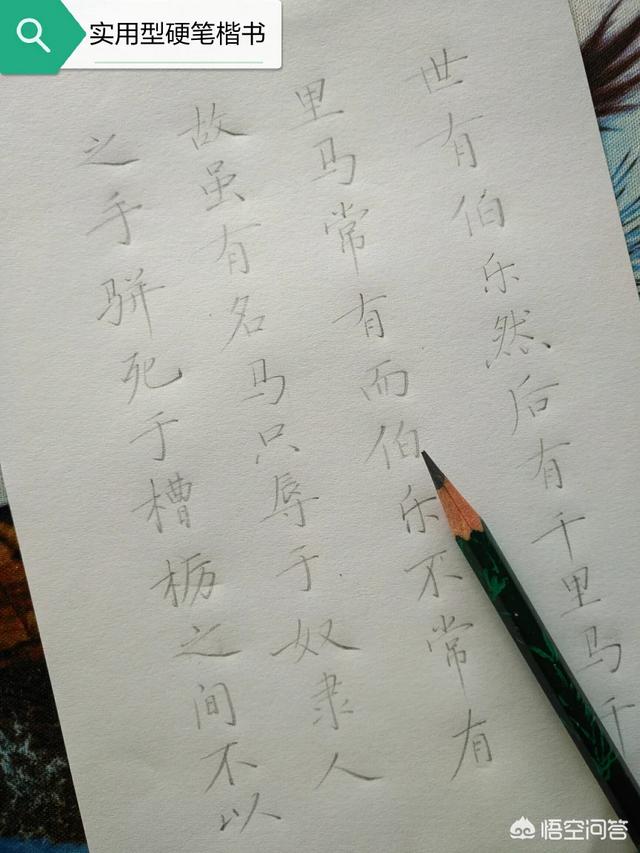 实用型硬笔楷书
世有伯乐然后有千里马千
里马常有而伯乐不常有
故虽有名马只辱于奴隶人
之手骈死于槽枥之间不以
悟空问答